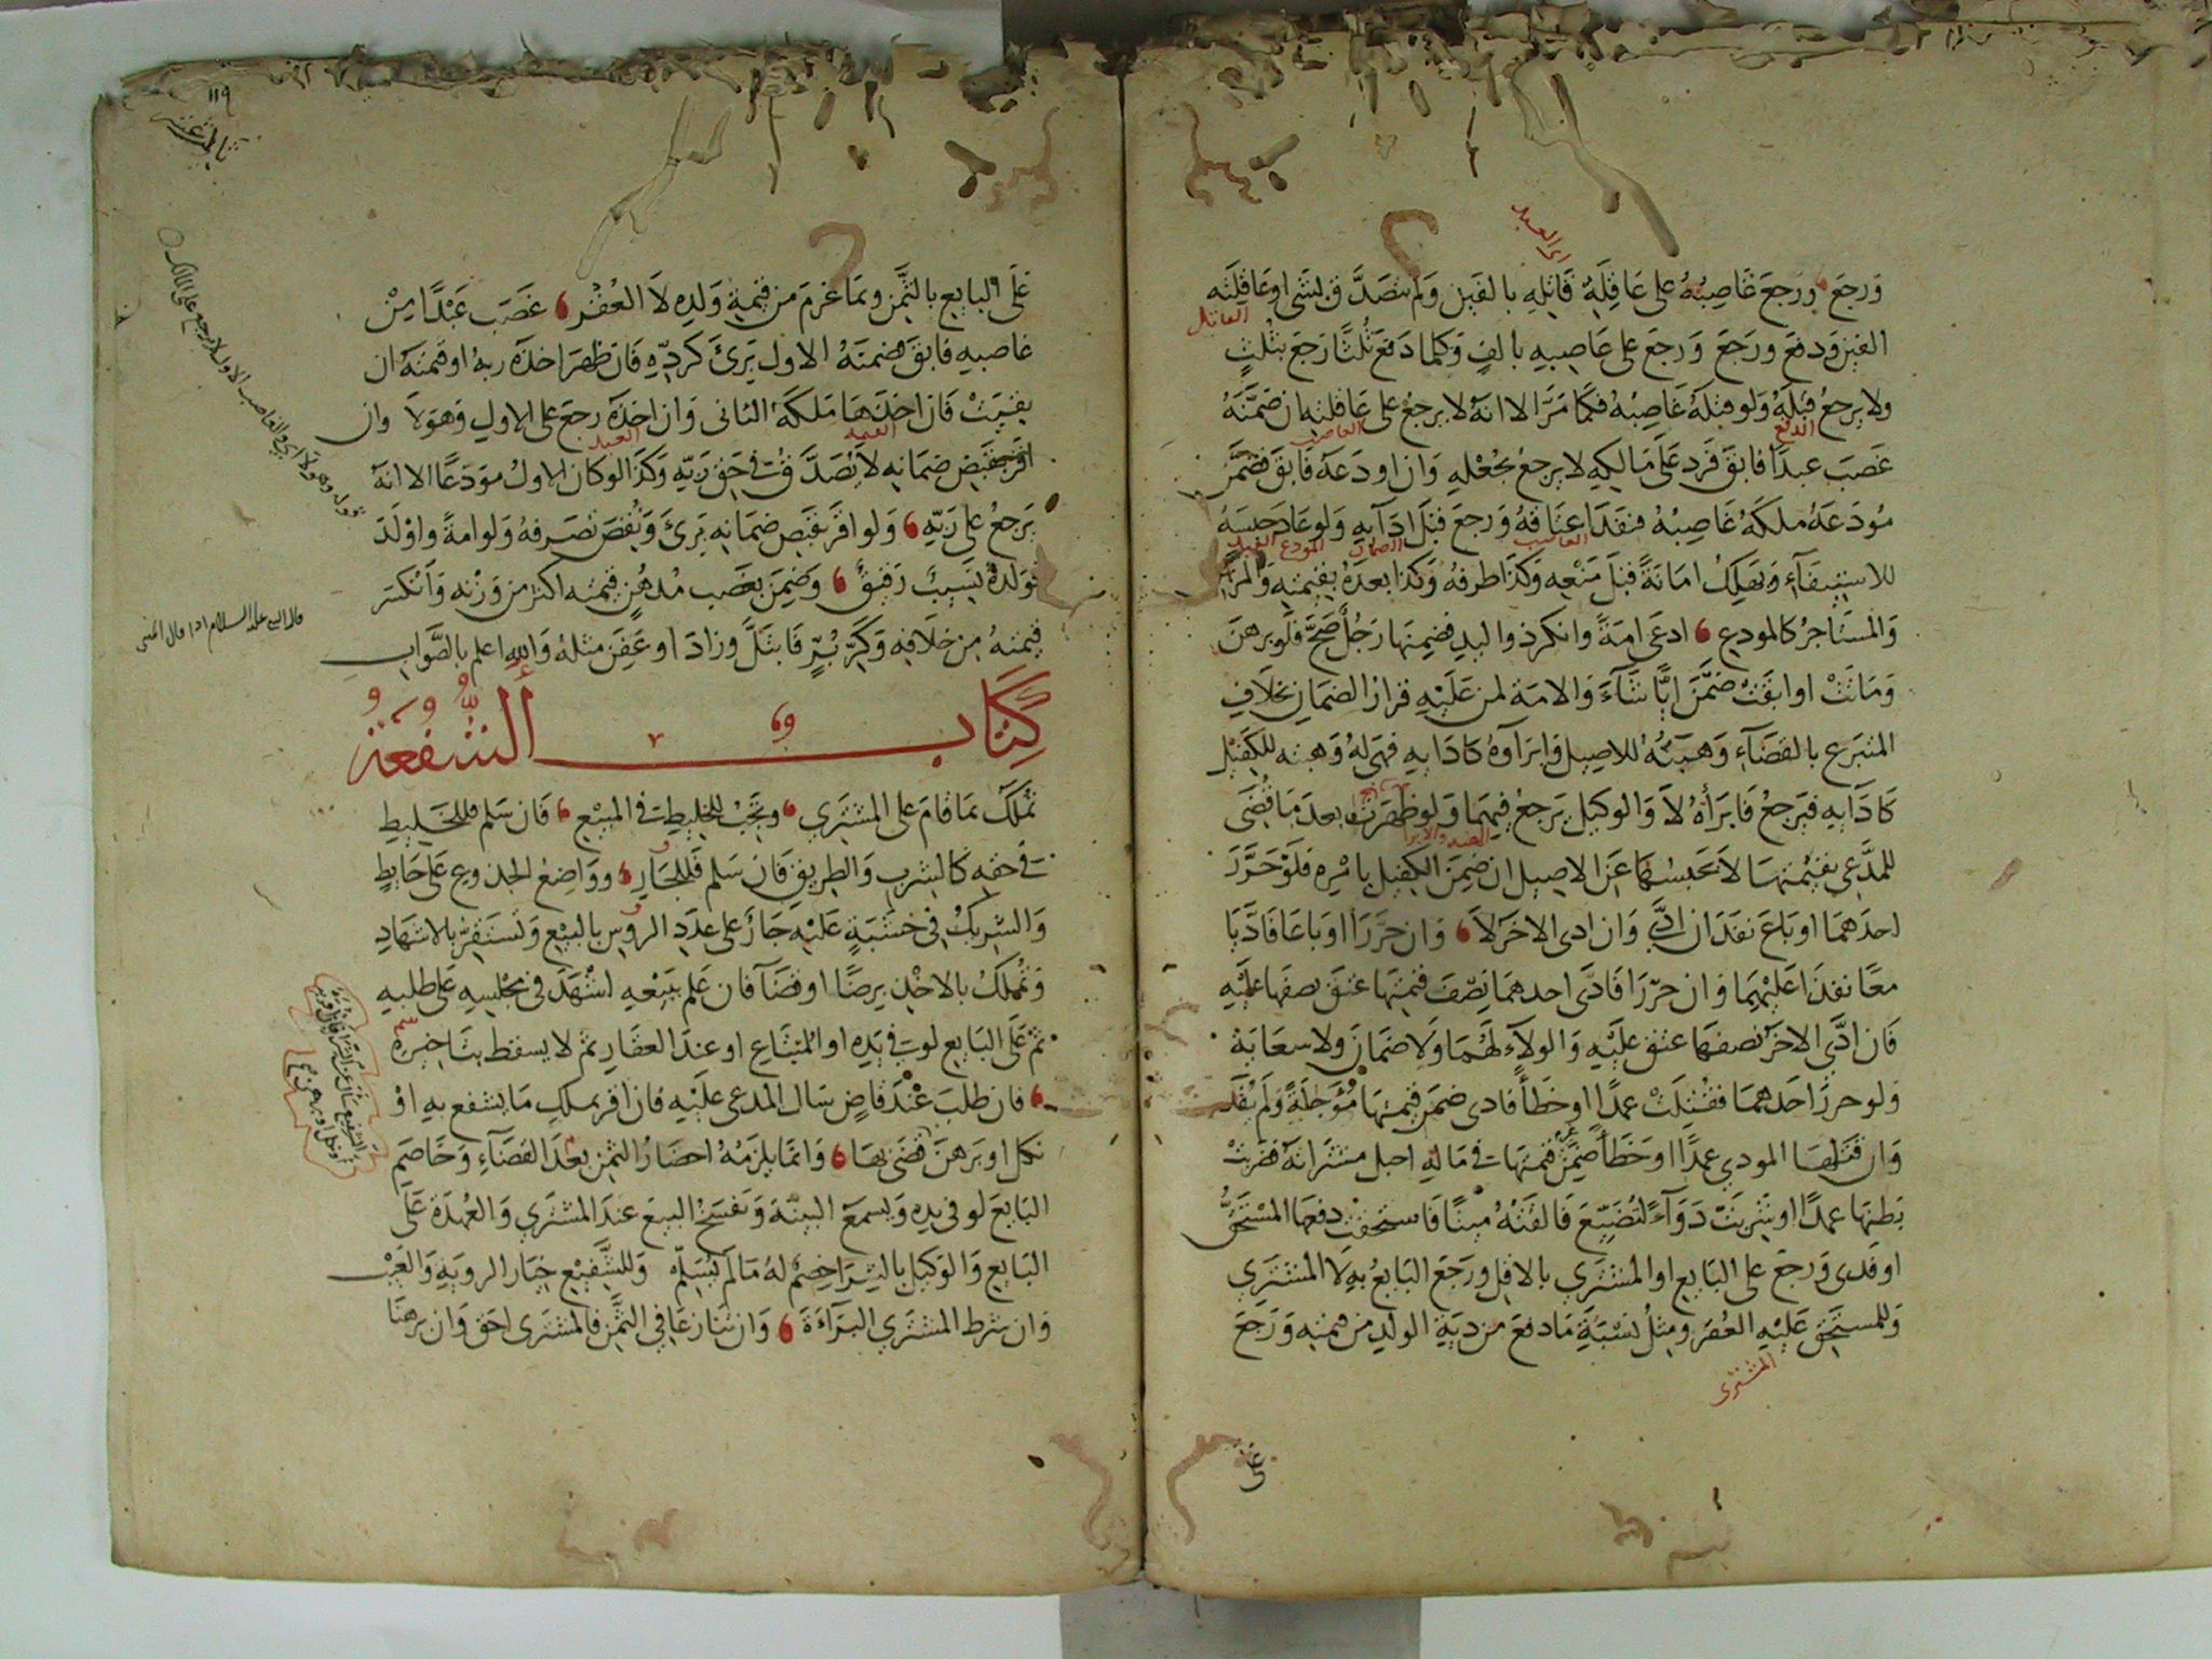 ورجع ورجع غاصبه على عاقلة قاتله بالفين ولم يتصدق بشى او عاقلته
الفين ودفع ورجع ورجع على غاصبه بالف وكلما دفع ثلثا رجع بثلث
ولا يرجع قبله ولو قتله غاصبه فكما مر الا انه لا يرجع على عاقلته ان ضمنه
غصب عبدا فابق فرد على مالكه لا يرجع بجعله وان اودعه فابق فضمن
مودعه ملكه غاصبه فنفذا عتاقه ورجع قبل ادآيه ولو عاد حبسه
للاستيفآء ويهلك امانة قبل منعه وكذا طرفه وكذا بعده بقيمته والمرتهن
والمستاجر كالمودع ادعى امة وانكر ذو اليد فضمنها رجل صح فلو برهن
وماتت او ابقت ضمن ايا شآء والامة لمن عليه قرار الضمان بخلاف
المتبرع بالقضآء وهبته للاصيل وابراوه كادايه فهى له وهبته للكفيل
كادايه فيرجع فابرأه لا والوكيل يرجع فيهما ولو ظهرت بعد ما قضى
للمدعى بقيمتها لا يحبسها عن الاصيل ان ضمن الكفيل بامره فلو حرر
احدهما او باع نفذ ان ادى وان ادى الاخر لا وان حررا او باعا فاديا
معا نفذا عليهما وان حررا فادى احدهما نصف قيمتها عتق نصفها عليه
فان ادى الاخر نصفها عتق عليه والولآء لهما ولا ضمان ولا سعاية
ولو حرر احدهما فقتلت عمدا او خطأ فادى ضمن قيمتها مؤجلة ولم يفد
وان قتلها المودى عمدا او خطأ ضمن قيمتها فى ماله احبل مشتراته فضربت
بطنها عمدا او شربت دوآء لتضيع فالقته ميتا فاستحقت دفعها المستحق
او فدى ورجع على البايع او المشترى بالاقل ورجع البايع به لا المشترى
وللمستحق عليه العقر ومثل نسبة ما دفع من دية الولد من قيمته ورجع
العبد
القاتل
الدفع
الغاصب
الغاصب
الضمان
المودع
العبد
المشترى
على
١١٩
ثانى عشر
على البايع بالثمن وبما غرم من قيمة ولده لا العقر غصب عبدا من
غاصبه فابق فضمنه الاول برئ كرده فان ظهر اخذه ربه او قيمته ان
بقيت فان اخذها ملكه الثانى وان اخذه رجع على الاول وهو لا وان
اقر بقبض ضمانه لا يصدق فى حق ربه وكذا لو كان الاول مودعا الا انه
يرجع على ربه ولو اقر بقبض ضمانه برئ ونقض تصرفه ولو امة واولد
فولده نسيب رقيق وضمن بغصب مدهن قيمته اكثر من وزنه وانكسر
قيمته من خلافه وكر بر فابتل وزاد او عفن مثله والله اعلم بالصواب
كتاب الشفعة
تملك بما قام على المشترى وتجب للخليط فى المبيع فان سلم فللخليط
فى حقه كالشرب والطريق فان سلم فللجار وواضع الجذوع على حايط
والشريك فى خشبة عليه جار على عدد الروس بالبيع وتستقر بالاشهاد
وتملك بالاخذ برضا او قضآ فان علم ببيعه اشهد فى مجلسه على طلبه
ثم على البايع لو فى يده او المبتاع او عند العقار ثم لا يسقط بتاخيره
فان طلب عند قاض سال المدعى عليه فان اقر بملك ما يشفع به او
نكل او برهن قضى بها وانما يلزمه احضار الثمن بعد القضآء وخاصم
البايع لو فى يده ويسمع البينة ويفسخ البيع عند المشترى والعهدة على
البايع والوكيل بالشرا خصم له ما لم يسلم وللشفيع خيار الروية والعيب
وان شرط المشترى البرآءة وان تنازعا فى الثمن فالمشترى احق وان برهنا
القيمة
العبد
قوله وهو لا اى الغاصب الاول لا يرجع على المالك